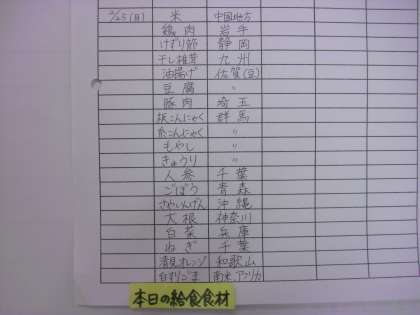 2/25(月) 米 中国地方
鶏肉 岩手
けずり節 静岡
干し椎茸 九州
油揚げ 佐賀(豆)
豆腐 〃
豚肉 埼玉
板こんにゃく 群馬
糸こんにゃく 〃
もやし 〃
きゅうり 〃
人参 千葉
ごぼう 青森
さやいんげん 沖縄
大根 神奈川
白菜 兵庫
ねぎ 千葉
清見オレンジ 和歌山
白すりごま 南米、アフリカ
本日の給食食材